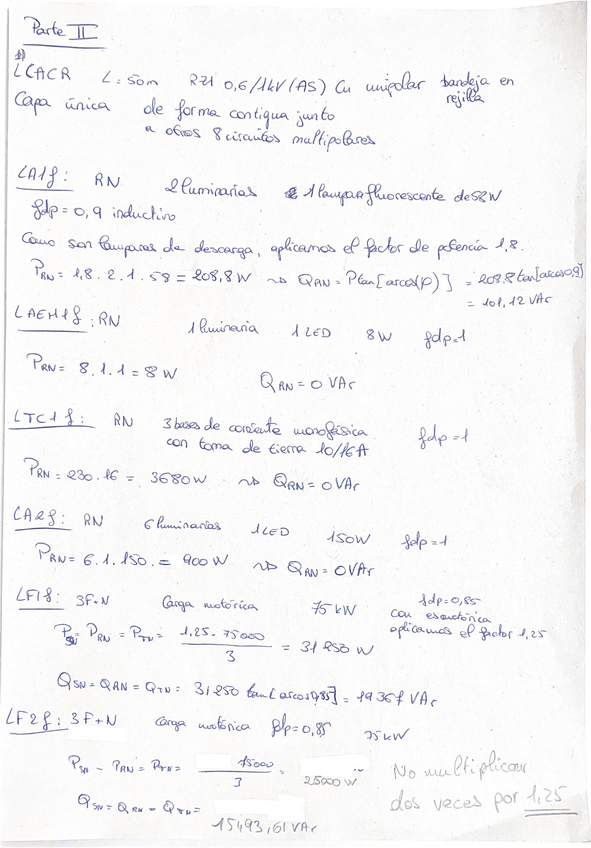 Parte II
1)
LCACR L: 50m RZ1 0,6/1kV (AS) Cu unipolar bandeja en rejilla
Capa única de forma contigua junto
a otros 8 circuitos multipolares
LA1f: RN 2 luminarias 1 lámpara fluorescente de 58W
fdp = 0,9 inductivo
Como son lámparas de descarga, aplicamos el factor de potencia 1,8.
PRN = 1,8 . 2 . 1 . 58 = 208,8 W ~> QRN = P tan[arcos(φ)] = 208,8 tan[arcos0,9]
= 101,12 VAr
LAEM1f: RN 1 luminaria 1 LED 8W fdp=1
PRN = 8 . 1 . 1 = 8 W QRN = 0 VAr
LTC1f: RN 3 bases de corriente monofásica fdp = 1
con toma de tierra 10/16A
PRN = 230 . 16 = 3680 W ~> QRN = 0 VAr
LA2f: RN 6 luminarias 1 LED 150W fdp = 1
PRN = 6 . 1 . 150 . = 900 W ~> QRN = 0 VAr
LF1f: 3F+N Carga motórica 75 kW fdp = 0,85
con es motórica
aplicamos el factor 1,25
PSN = PRN = PTN = 1,25 . 75000 / 3 = 31250 W
QSN = QRN = QTN = 31250 tan[arcos0,85] = 19367 VAr
LF2f: 3F+N carga motórica fdp = 0,85 75 kW
PSN - PRN = PTN = 75000 / 3 = 25000 W
No multiplicar
dos veces por 1,25
QSN = QRN = QTN =
15493,61 VAr